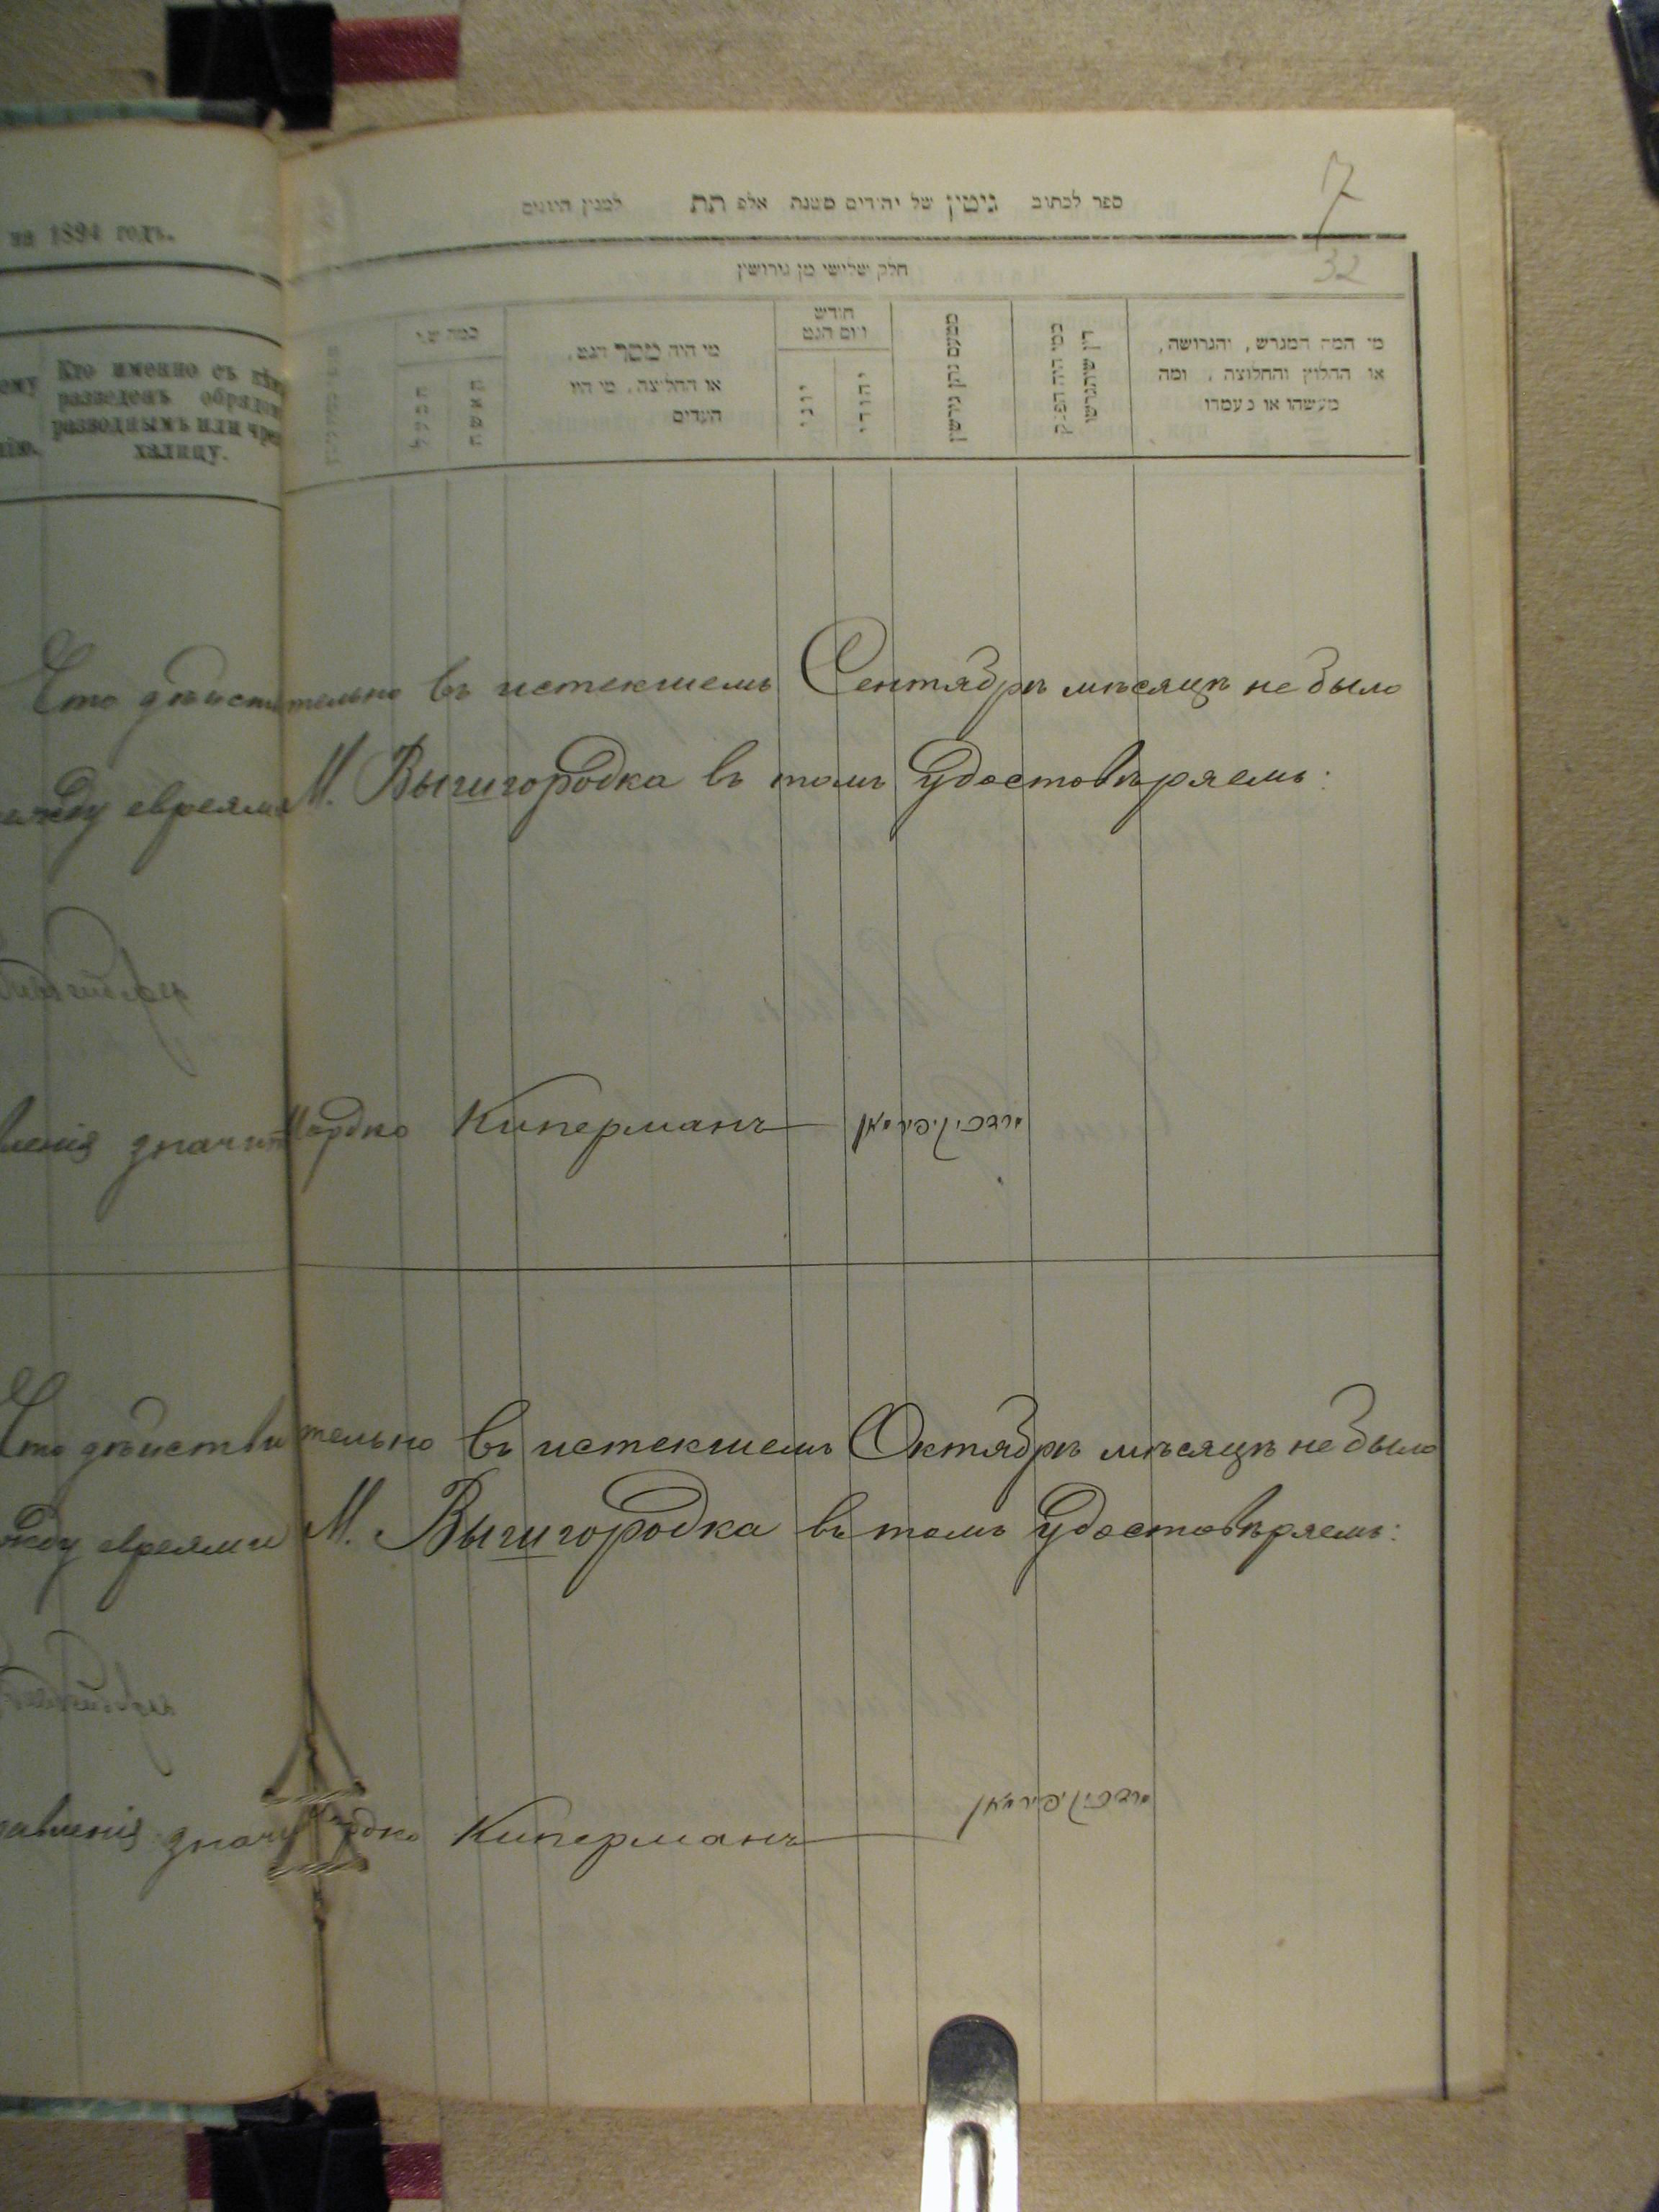 за 1894 годъ.
Кто именно съ кѣмъ
разведенъ обрядом
разводнымъ или чре
халицу.
7
ספר לכתוב גיטין של יהודים משנת אלפ תת למנין היונים
32
חלק שלישי מן גורושין
מי המה המגרש, והגרושה,
או החלוץ והחלוצה, ומה
מעשהו או נעמדו
דין שיתגרשו
במקום נתן גורשין
חודש
ויום הגט
יהודי
יוני
מי היה מסדר הגט,
או החליצה, מי היו
העדים
כמה שני
האשה
הבעל
Что дѣйствительно въ истекшемъ Сентябрѣ мѣсяцѣ не было
между евреями М. Вышгородка въ томъ удостовѣряемъ:
вленія значит Мордко Киперманъ מרדכי קיפערמאן
Что дѣйствительно въ истекшемъ Октябрѣ мѣсяцѣ не было
жду евреями М. Вышгородка въ томъ удостовѣряемъ:
авленія Киперманъ מרדכי קיפערמאן